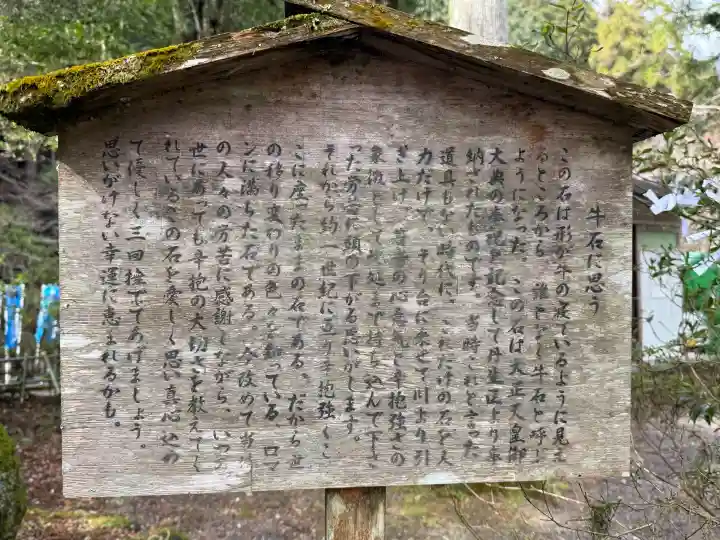 牛石に思う
この石は形が牛の寝ているように見え
るところから、誰となく牛石と呼ぶ
ようになった。この石は大正天皇御
大典の奉祝を記念して丹生区より奉
納されたものです。当時これと言った
道具もない時代に、これだけの石を人
力だけで、そり台に乗せて川より引
き上げ、皆の心意気と辛抱強さの
象徴として此処まで持ち込んで下さ
った労苦に頭の下がる思いがします。
それから約一世紀に辺り辛抱強くこ
こに座ったままの石である、だから世
の移り変わりの色々を知っている、ロマ
ンに満ちた石である。今改めて当時
の人々の労苦に感謝しながら、いつの
世に有っても辛抱の大切さを教えてく
れているこの石を愛しく思い真心込め
て優しく三回撫でてあげましょう。
思いがけない幸運に恵まれるかも。